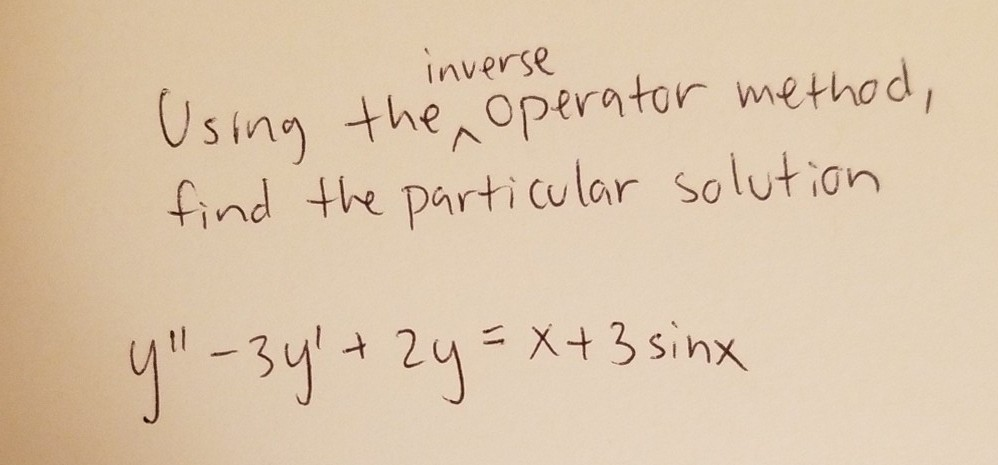 Using the ^ inverse operator method,
find the particular solution
y'' - 3y' + 2y = x + 3 sinx